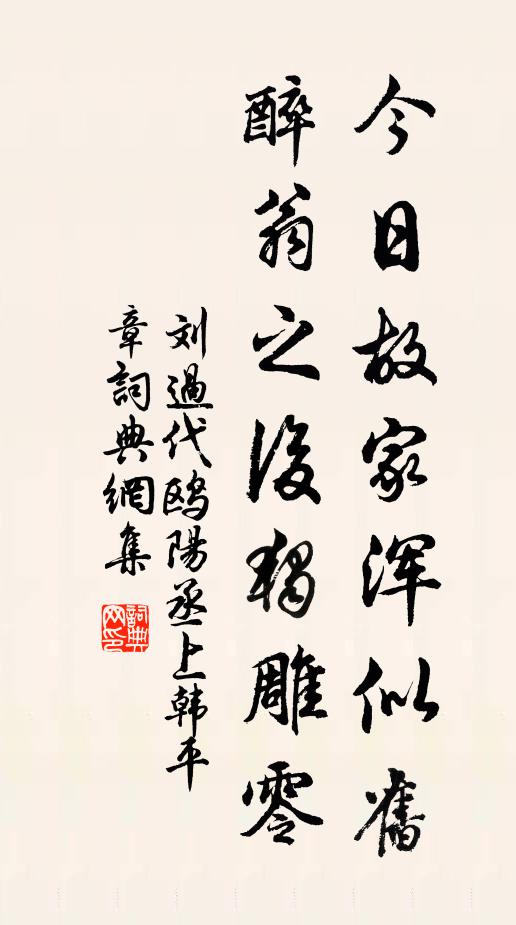 今日故家浑似舊
醉翁之後獨雕零
刘過代鸥陽丞上韩平
章詞典網集
詞典
网印